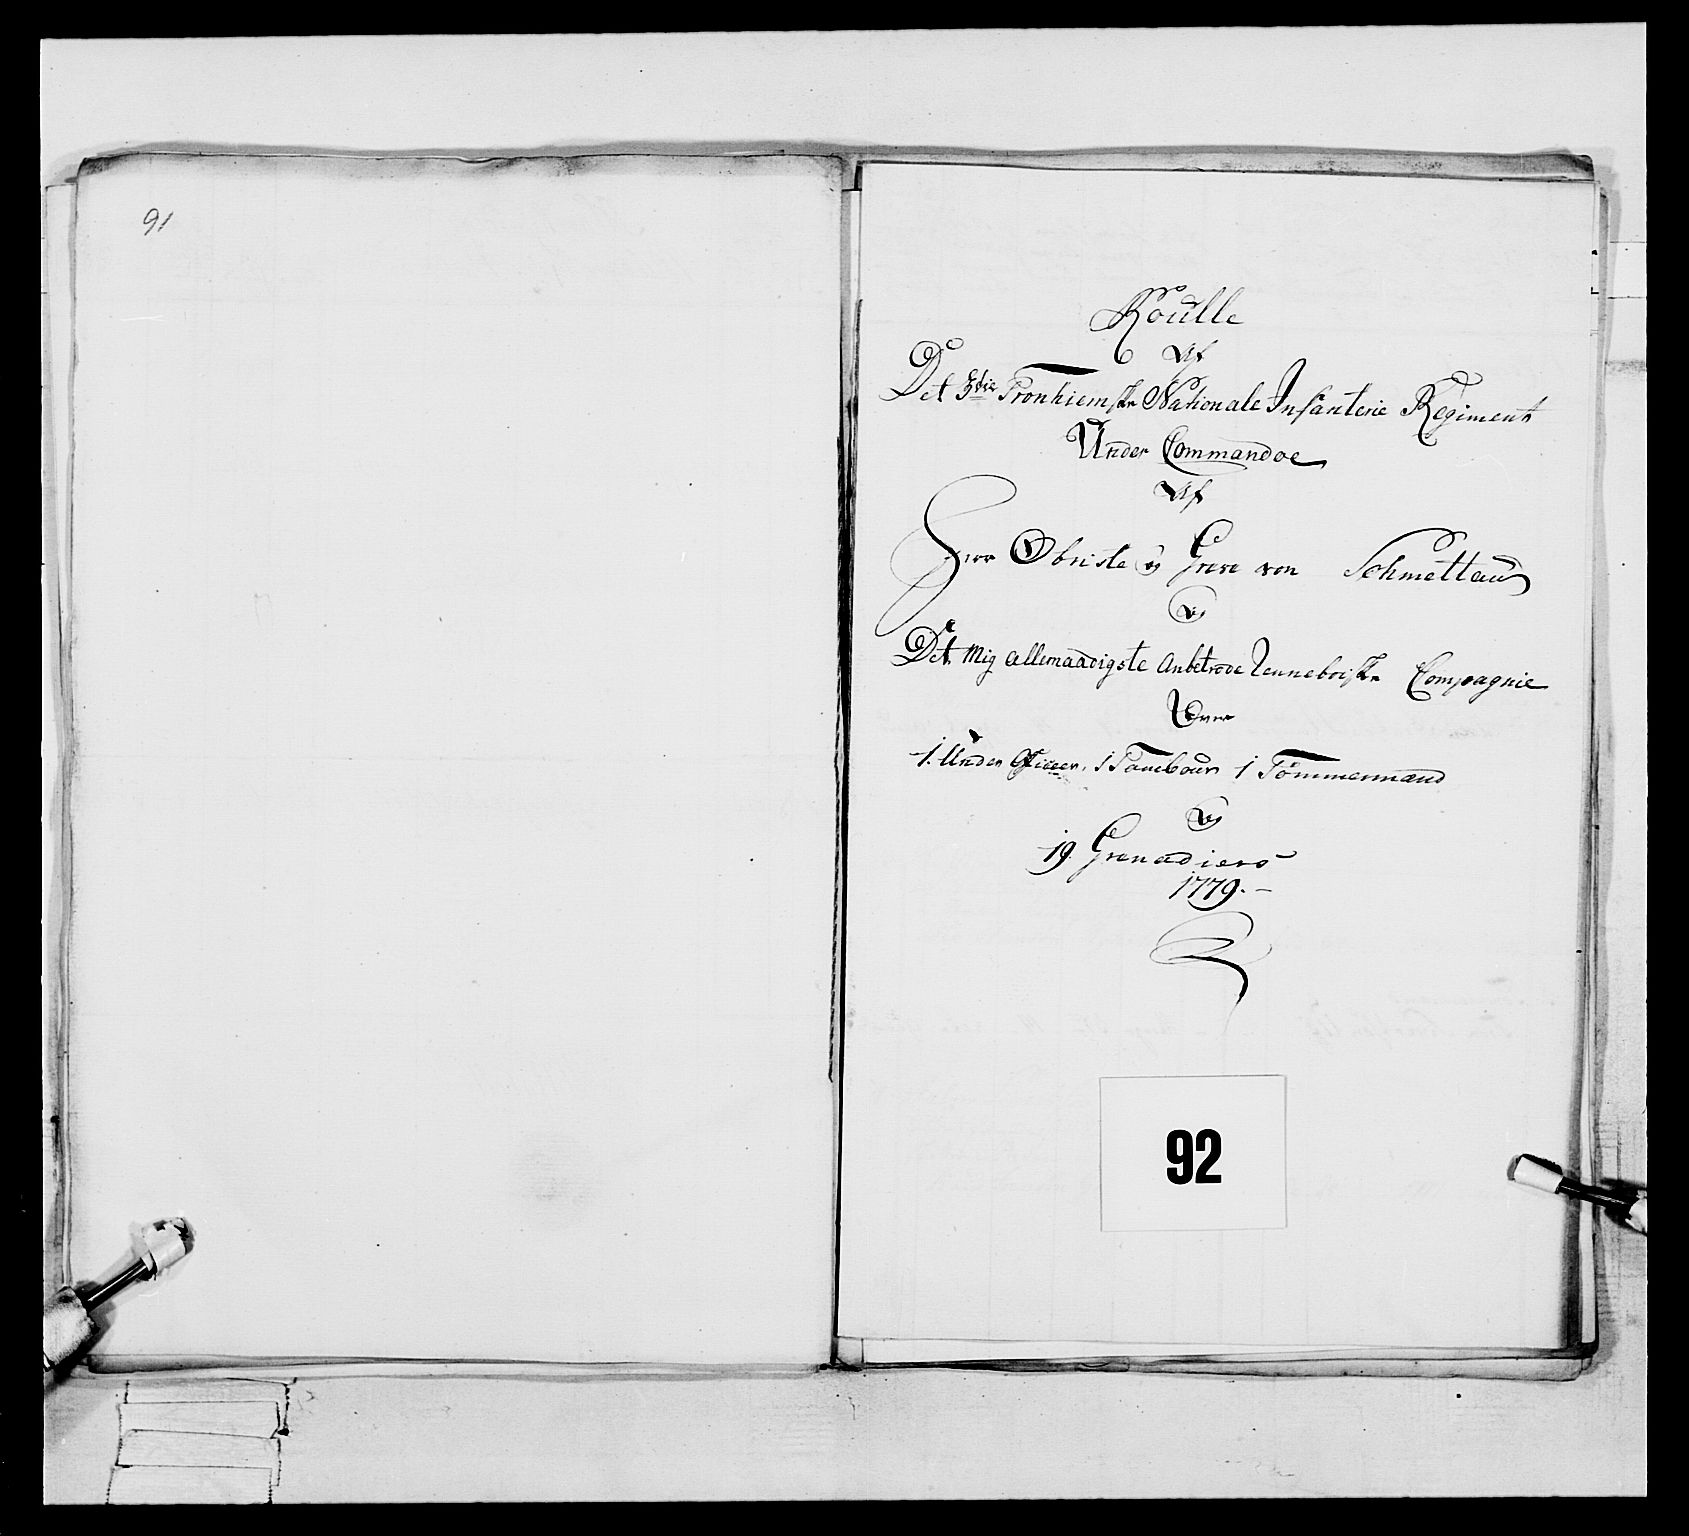 91
Roulle
Af
Det 3die Tronhiemske Nationale Infanterie Regiment
Under Commandoe
Af
Herr Obriste og Greve von Schmettau
og
Det Mig allernaadigste Anbetrode Compagnie
Over
1. Under Officer, 1 Tambour 1 Tömmermand
og
19. Grenadiers
1779.-
92